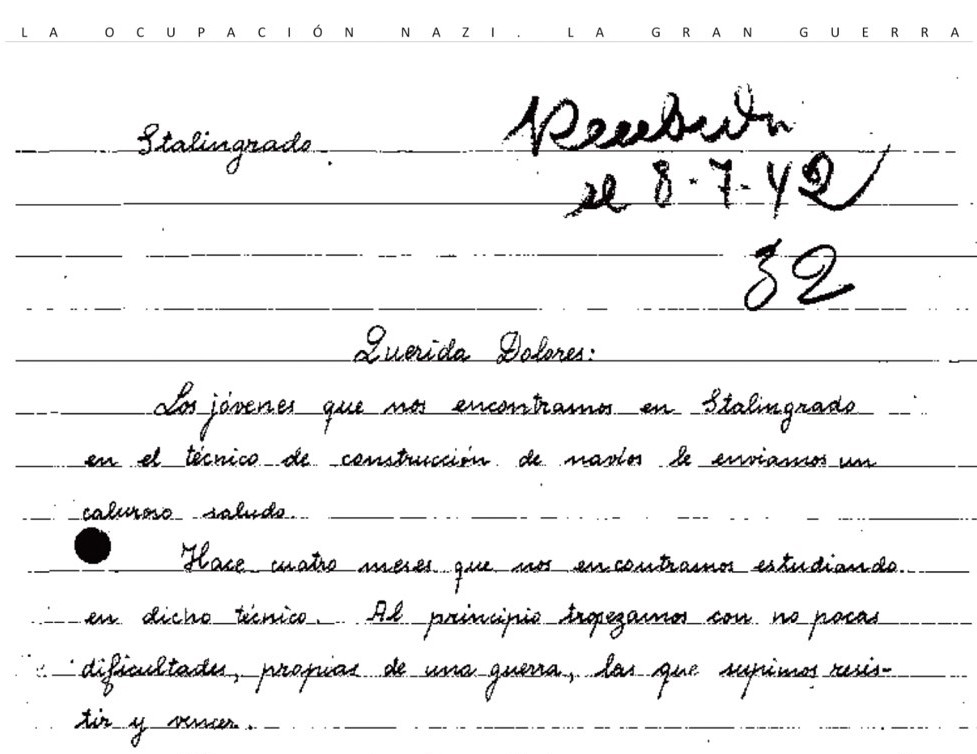 LA OCUPACIÓN NAZI. LA GRAN GUERRA
Stalingrado.
Recibido
el 8-7-42
32
Querida Dolores:
Los jóvenes que nos encontramos en Stalingrado
en el técnico de construcción de navíos le enviamos un
caluroso saludo.
Hace cuatro meses que nos encontramos estudiando
en dicho técnico. Al principio tropezamos con no pocas
dificultades, propias de una guerra, las que supimos resis-
tir y vencer.